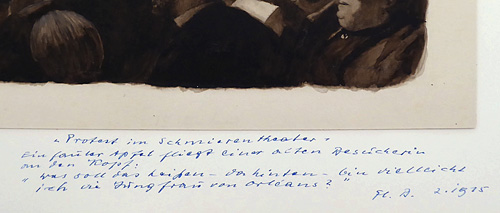 „Protest im Schmierentheater“
Ein fauler Apfel fliegt einer alten Besucherin
an den Kopf:
„Was soll das heißen – da hinten – bin vielleicht
ich die Jungfrau von Orléans?“
2.1925